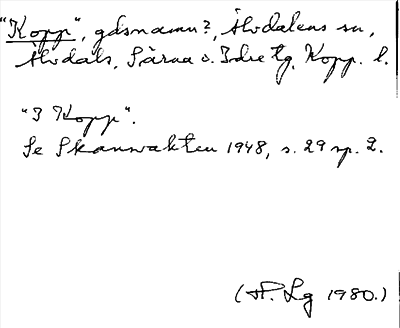 "Kopp", gdsnamn?, Älvdalens sn,
Älvdals, Särna o. Idre tg, Kopp. l.
"I Kopp".
Se Skansvakten 1948, s. 29 sp. 2.
(H. Lg 1980.)